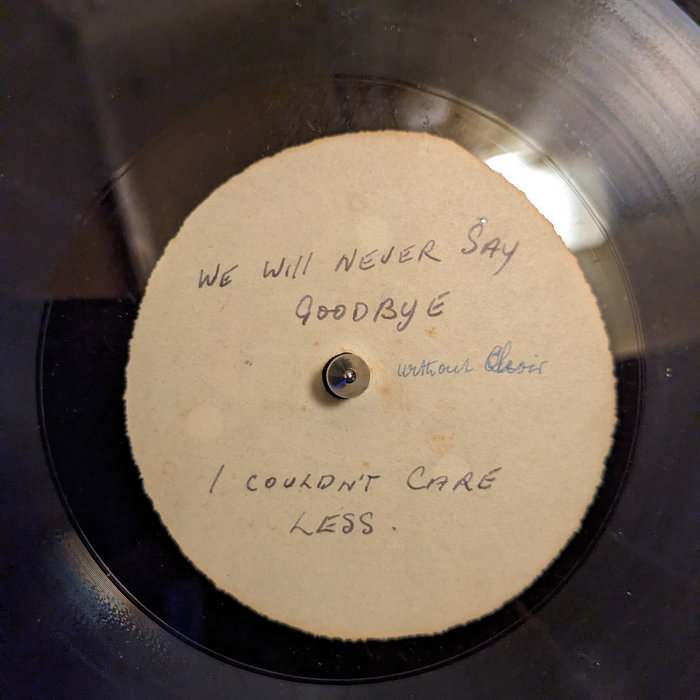 WE Will NEVER SAY
GOODBYE
without Choir
I COULDN'T CARE
LESS.